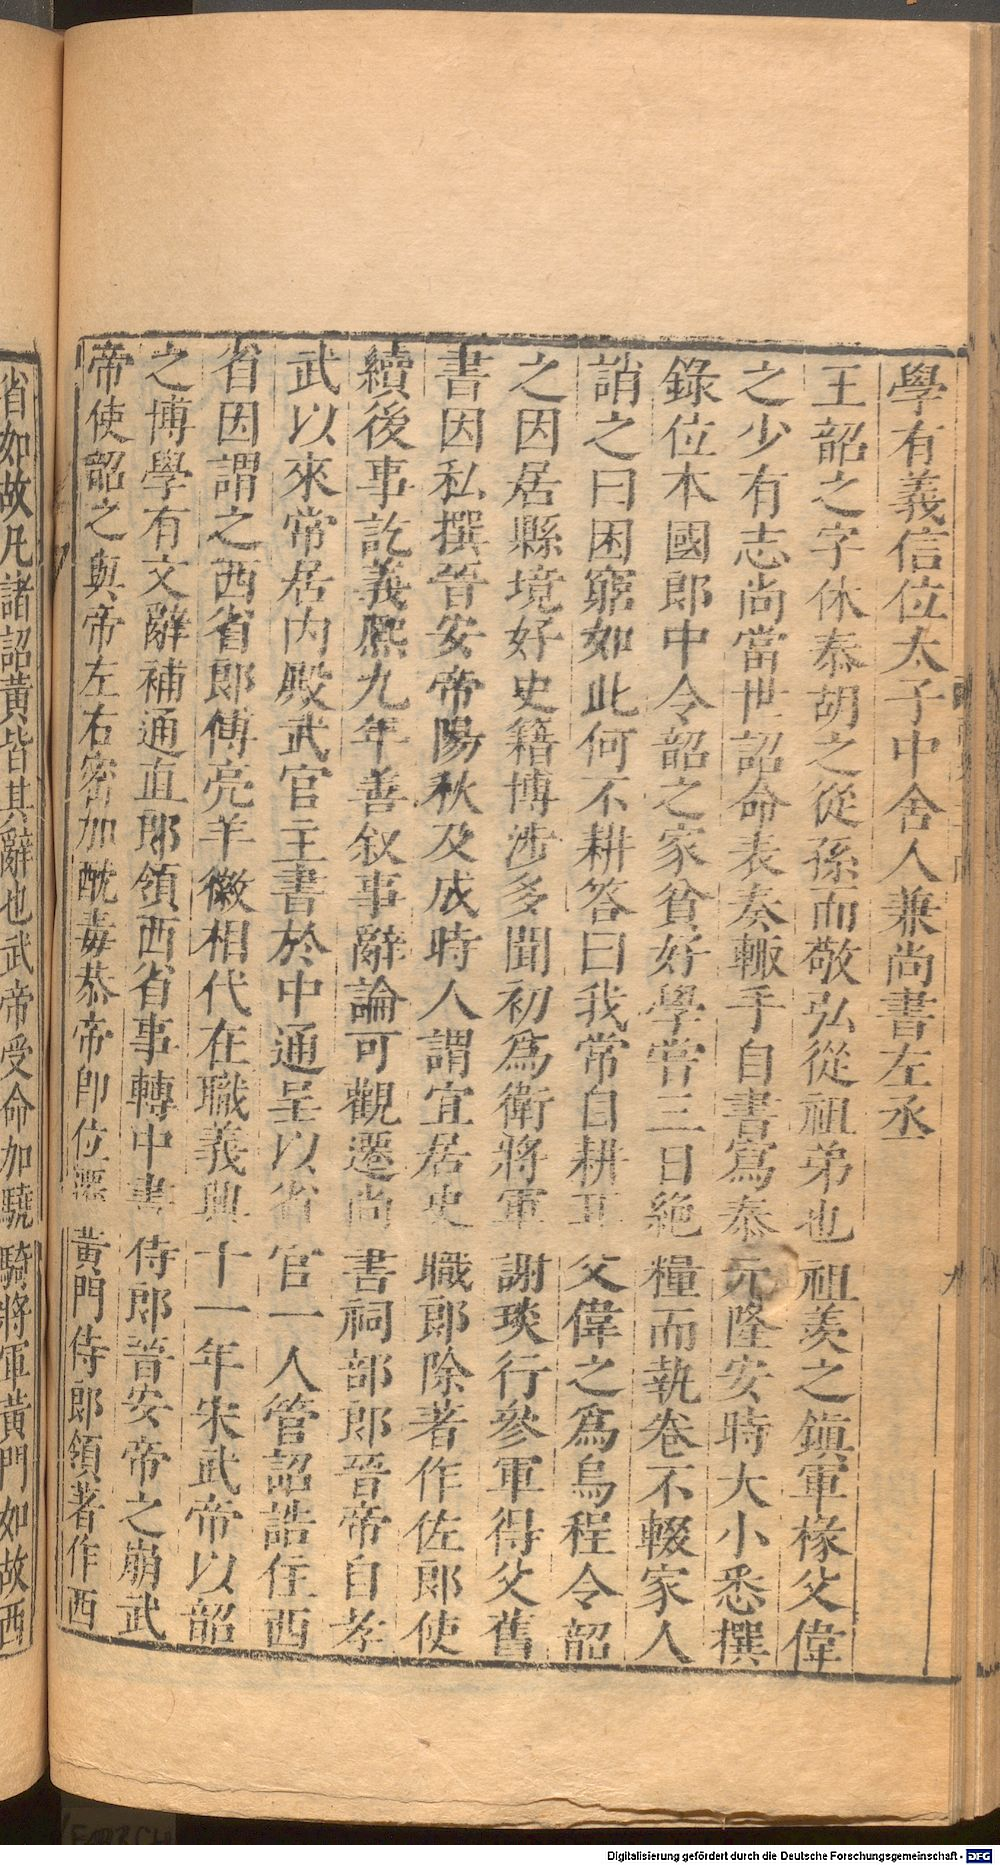 學有義信位太子中舍人兼尚書左丞
王韶之字休泰胡之從孫而敬弘從祖弟也祖羨之鎭軍椽父偉
之少有志尚當世詔命表奏輙手自書寫泰元隆安時大小悉撰
錄位本國郎中令韶之家貧好學嘗三日絶糧而執卷不輟家人
誚之曰困窮如此何不耕答曰我常自耕耳父偉之爲烏程令韶
之因居縣境好史籍博涉多聞初爲衛將軍謝琰行參軍得父舊
書因私撰晉安帝陽秋及成時人謂宜居史職郎除著作佐郎使
續後事訖義熈九年善叙事辭論可觀遷尚書祠部郎晉帝自孝
武以來常居内殿武官主書於中通呈以省官一人管詔誥任西
省因謂之西省郎傅亮羊徽相代在職義熙十一年宋武帝以韶
之博學有文辭補通直郎領西省事轉中書侍郎晉安帝之崩武
帝使韶之與帝左右密加酖毒恭帝即位遷黄門侍郎領著作西
省如故凡諸詔黄皆其辭也武帝受命加驍騎將軍黄門如故西
九
Digitalisierung gefördert durch die Deutsche Forschungsgemeinschaft - DFG